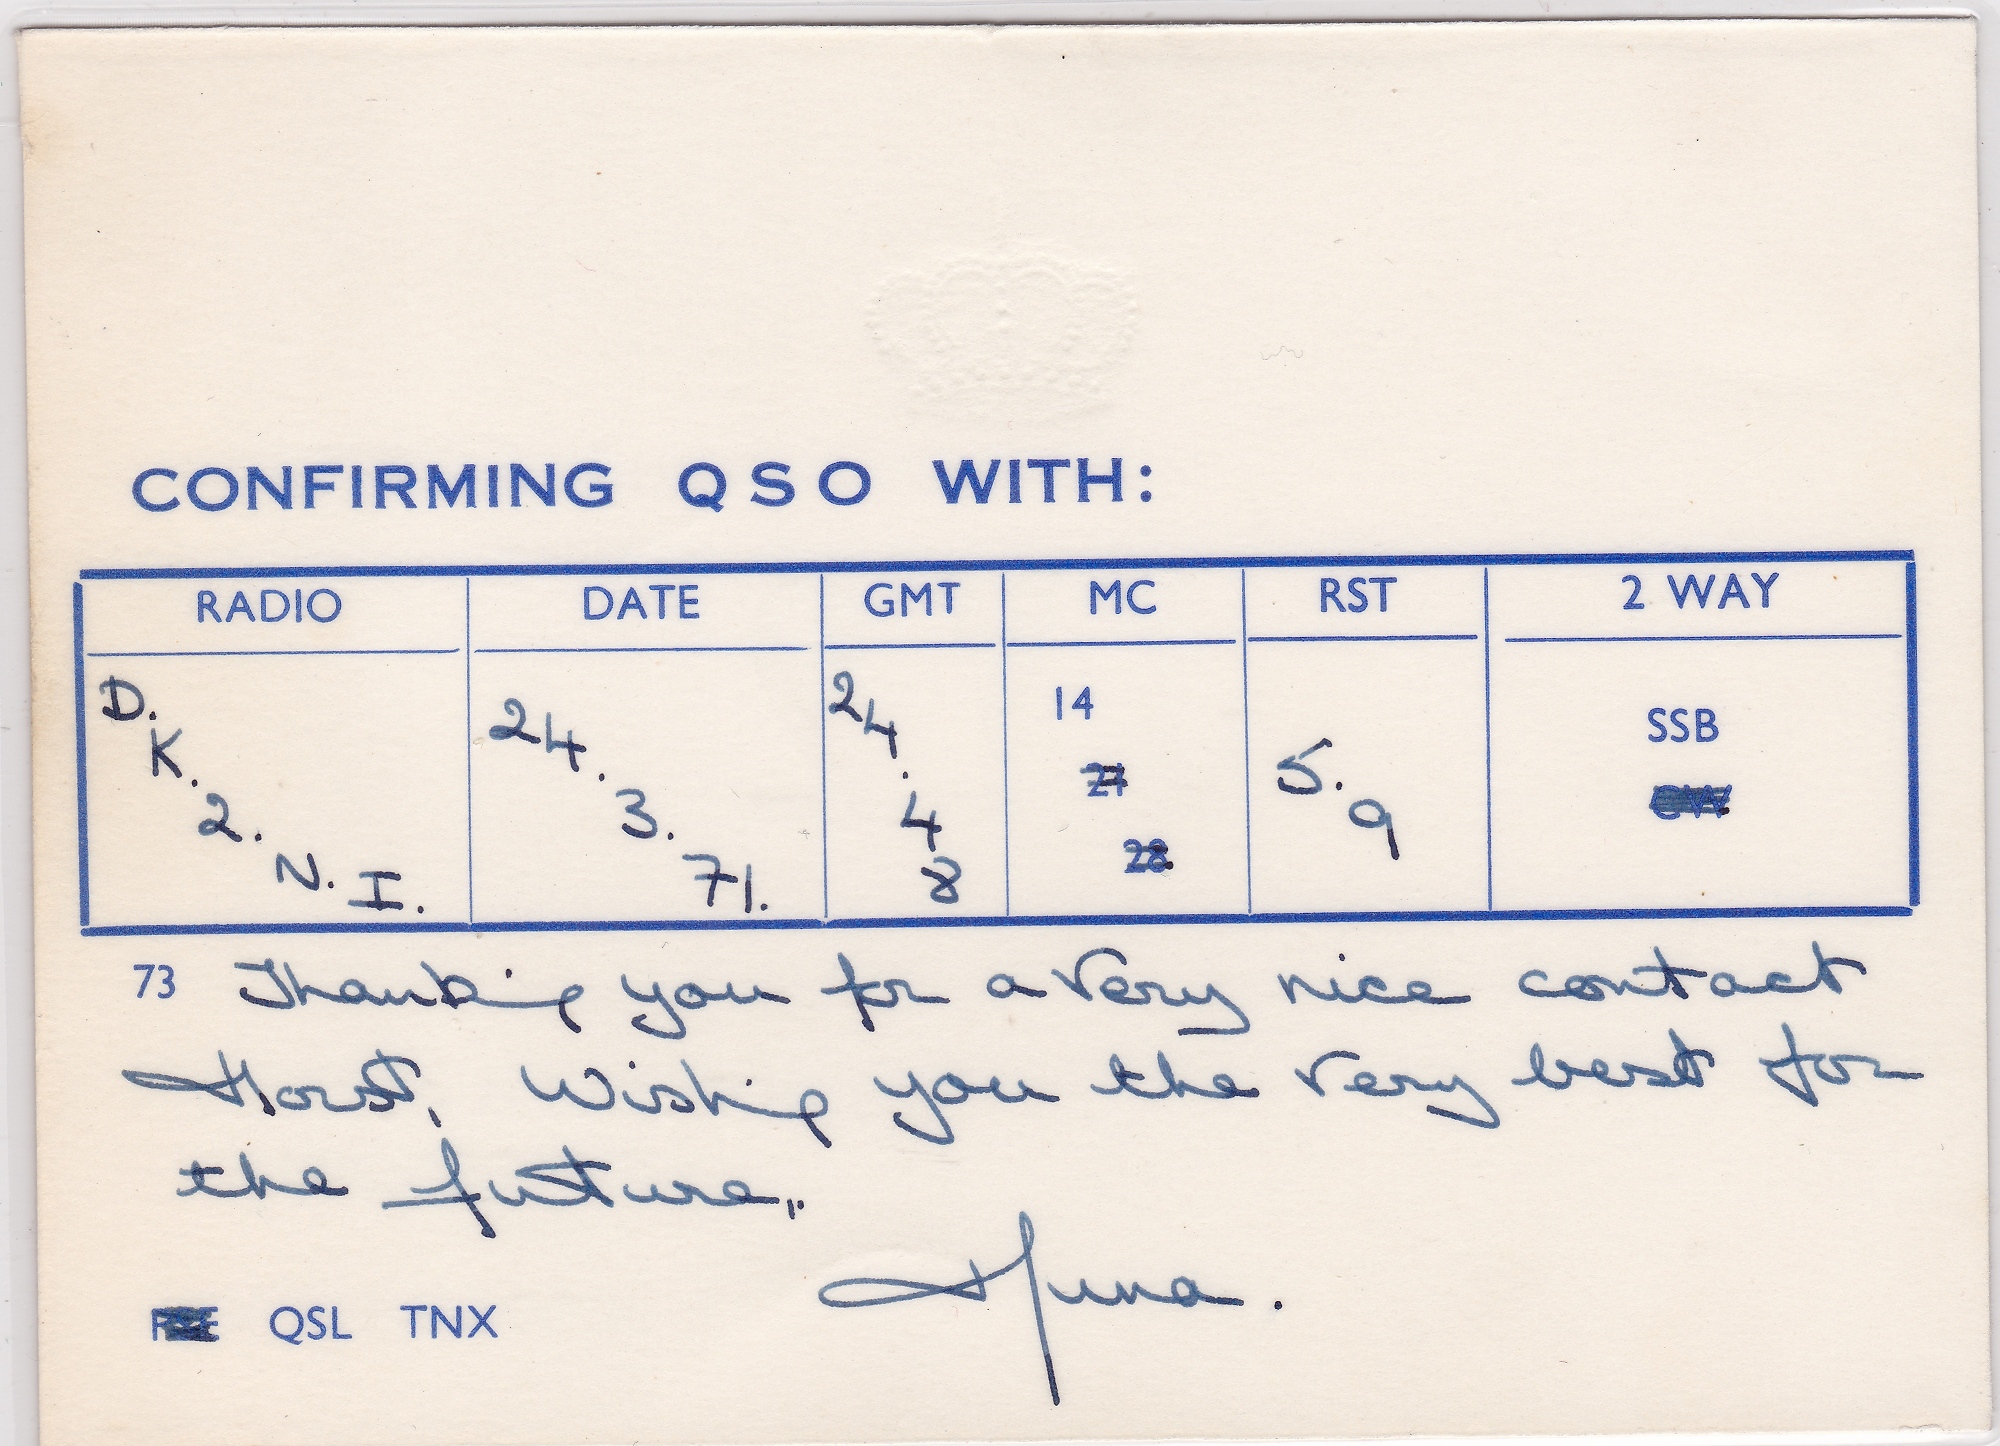 CONFIRMING QSO WITH:
RADIO DATE GMT MC RST 2 WAY
D.K.2.N.I. 24.3.71. 24.48 14 5.9 SSB
21
28 CW
73 Thanking you for a very nice contact
Horst, Wishing you the very best for
the future,.
QSL TNX